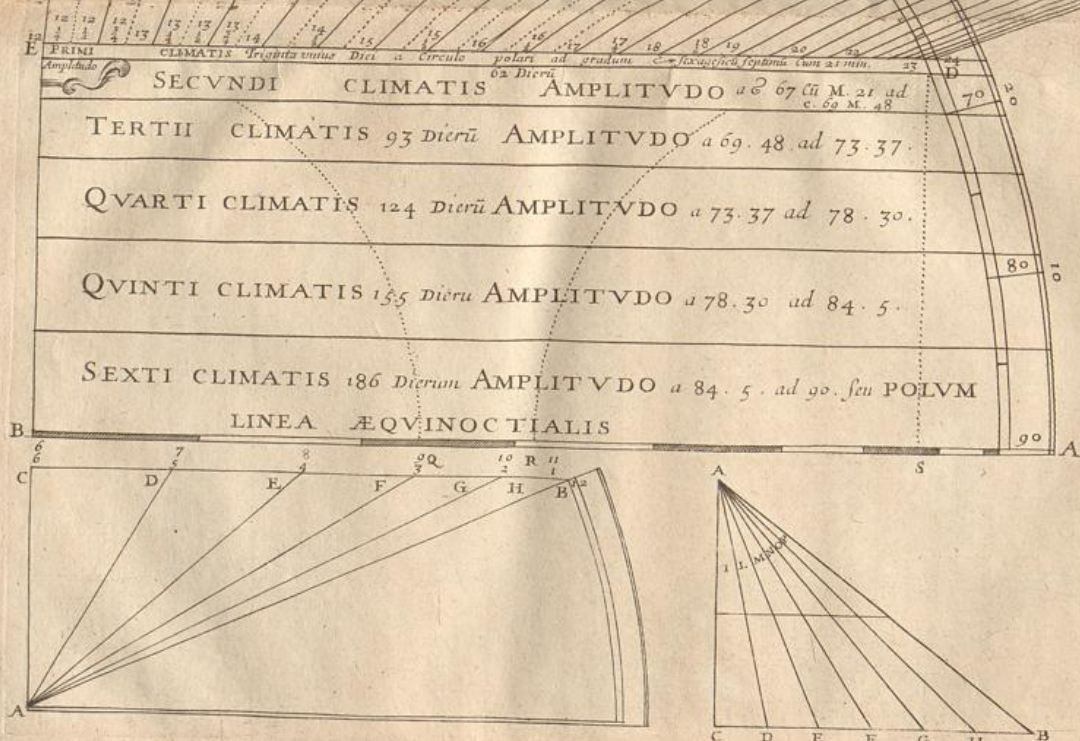 12 12 1/2 12 1/4 12 3/4 13 13 1/4 13 1/2 13 3/4 14 14 1/2 15 15 1/2 16 16 1/2 17 17 1/2 18 18 1/2 19 20 22 23 24
E PRIMI CLIMATIS Triginta unius Diei a Circulo polari ad gradum & sexagesimū septimū Cum 21 min. D
Amplitudo
62 Dierū
SECVNDI CLIMATIS AMPLITVDO a G 67 Cū M. 21 ad
c. 69 M. 48
70 20
TERTII CLIMATIS 93 Dierū AMPLITVDO a 69. 48 ad 73. 37.
QVARTI CLIMATIS 124 Dierū AMPLITVDO a 73. 37 ad 78. 30.
80 10
QVINTI CLIMATIS 155 Dieru AMPLITVDO a 78. 30 ad 84. 5.
SEXTI CLIMATIS 186 Dierum AMPLITVDO a 84. 5. ad 90. seu POLVM
LINEA ÆQVINOCTIALIS
B 90 A
6 7 8 9 Q 10 R 11 S
6 5 4 3 2 1
C D E F G H B 12
A
A
I L M N O P
C D E F G H B